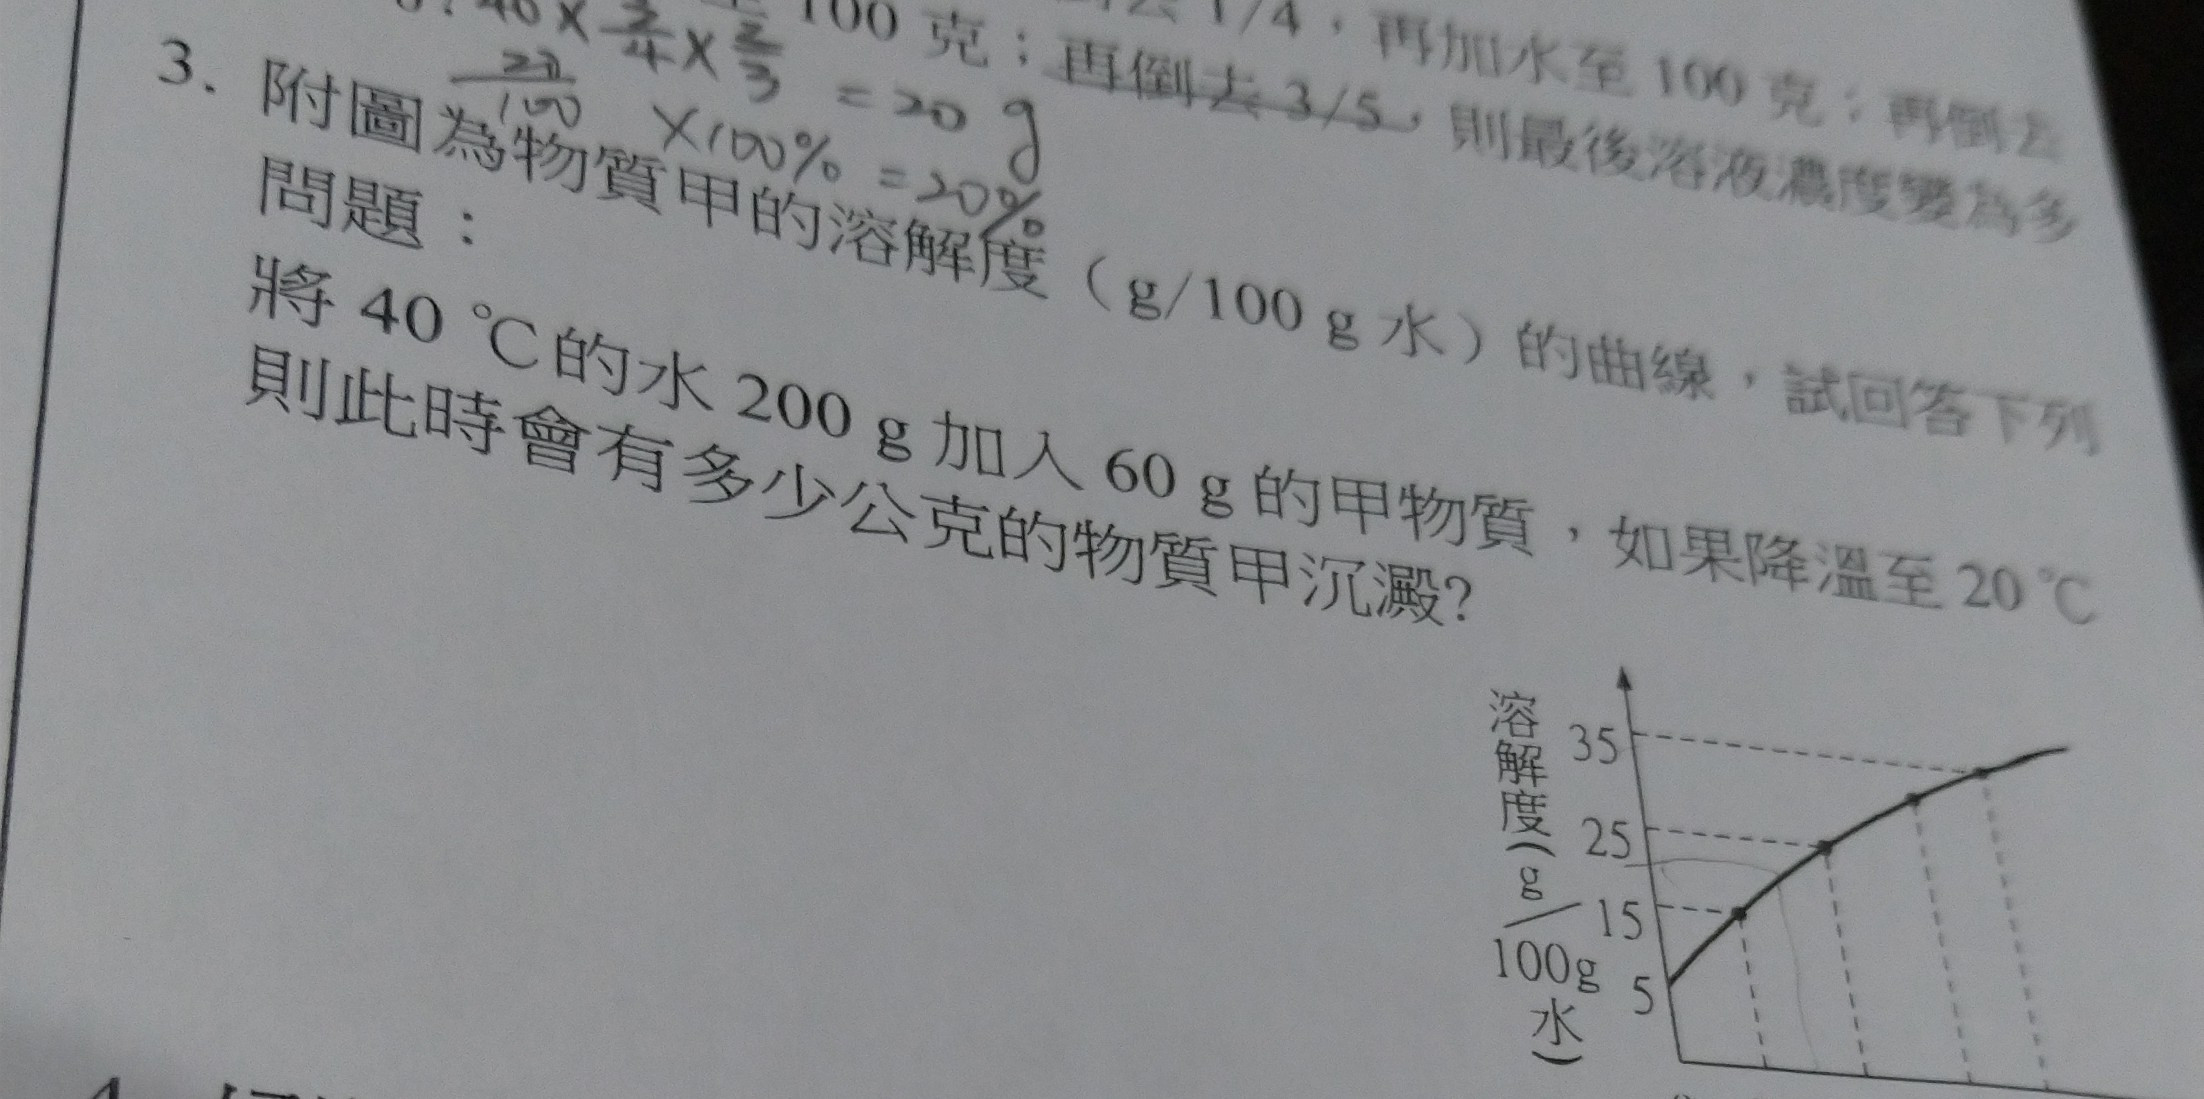 40 × 3/4 × 2/3 = 20 g
100 克；再倒去 3/5，則最後溶液濃度變為多
1/4，再加水至 100 克；再倒去
20/100 ×100% = 20%
3. 附圖為物質甲的溶解度（g/100 g 水）的曲線，試回答下列
問題：
將 40 ℃的水 200 g 加入 60 g 的甲物質，如果降溫至 20 ℃
則此時會有多少公克的物質甲沉澱?
溶解度(g/100g水)
35
25
15
5